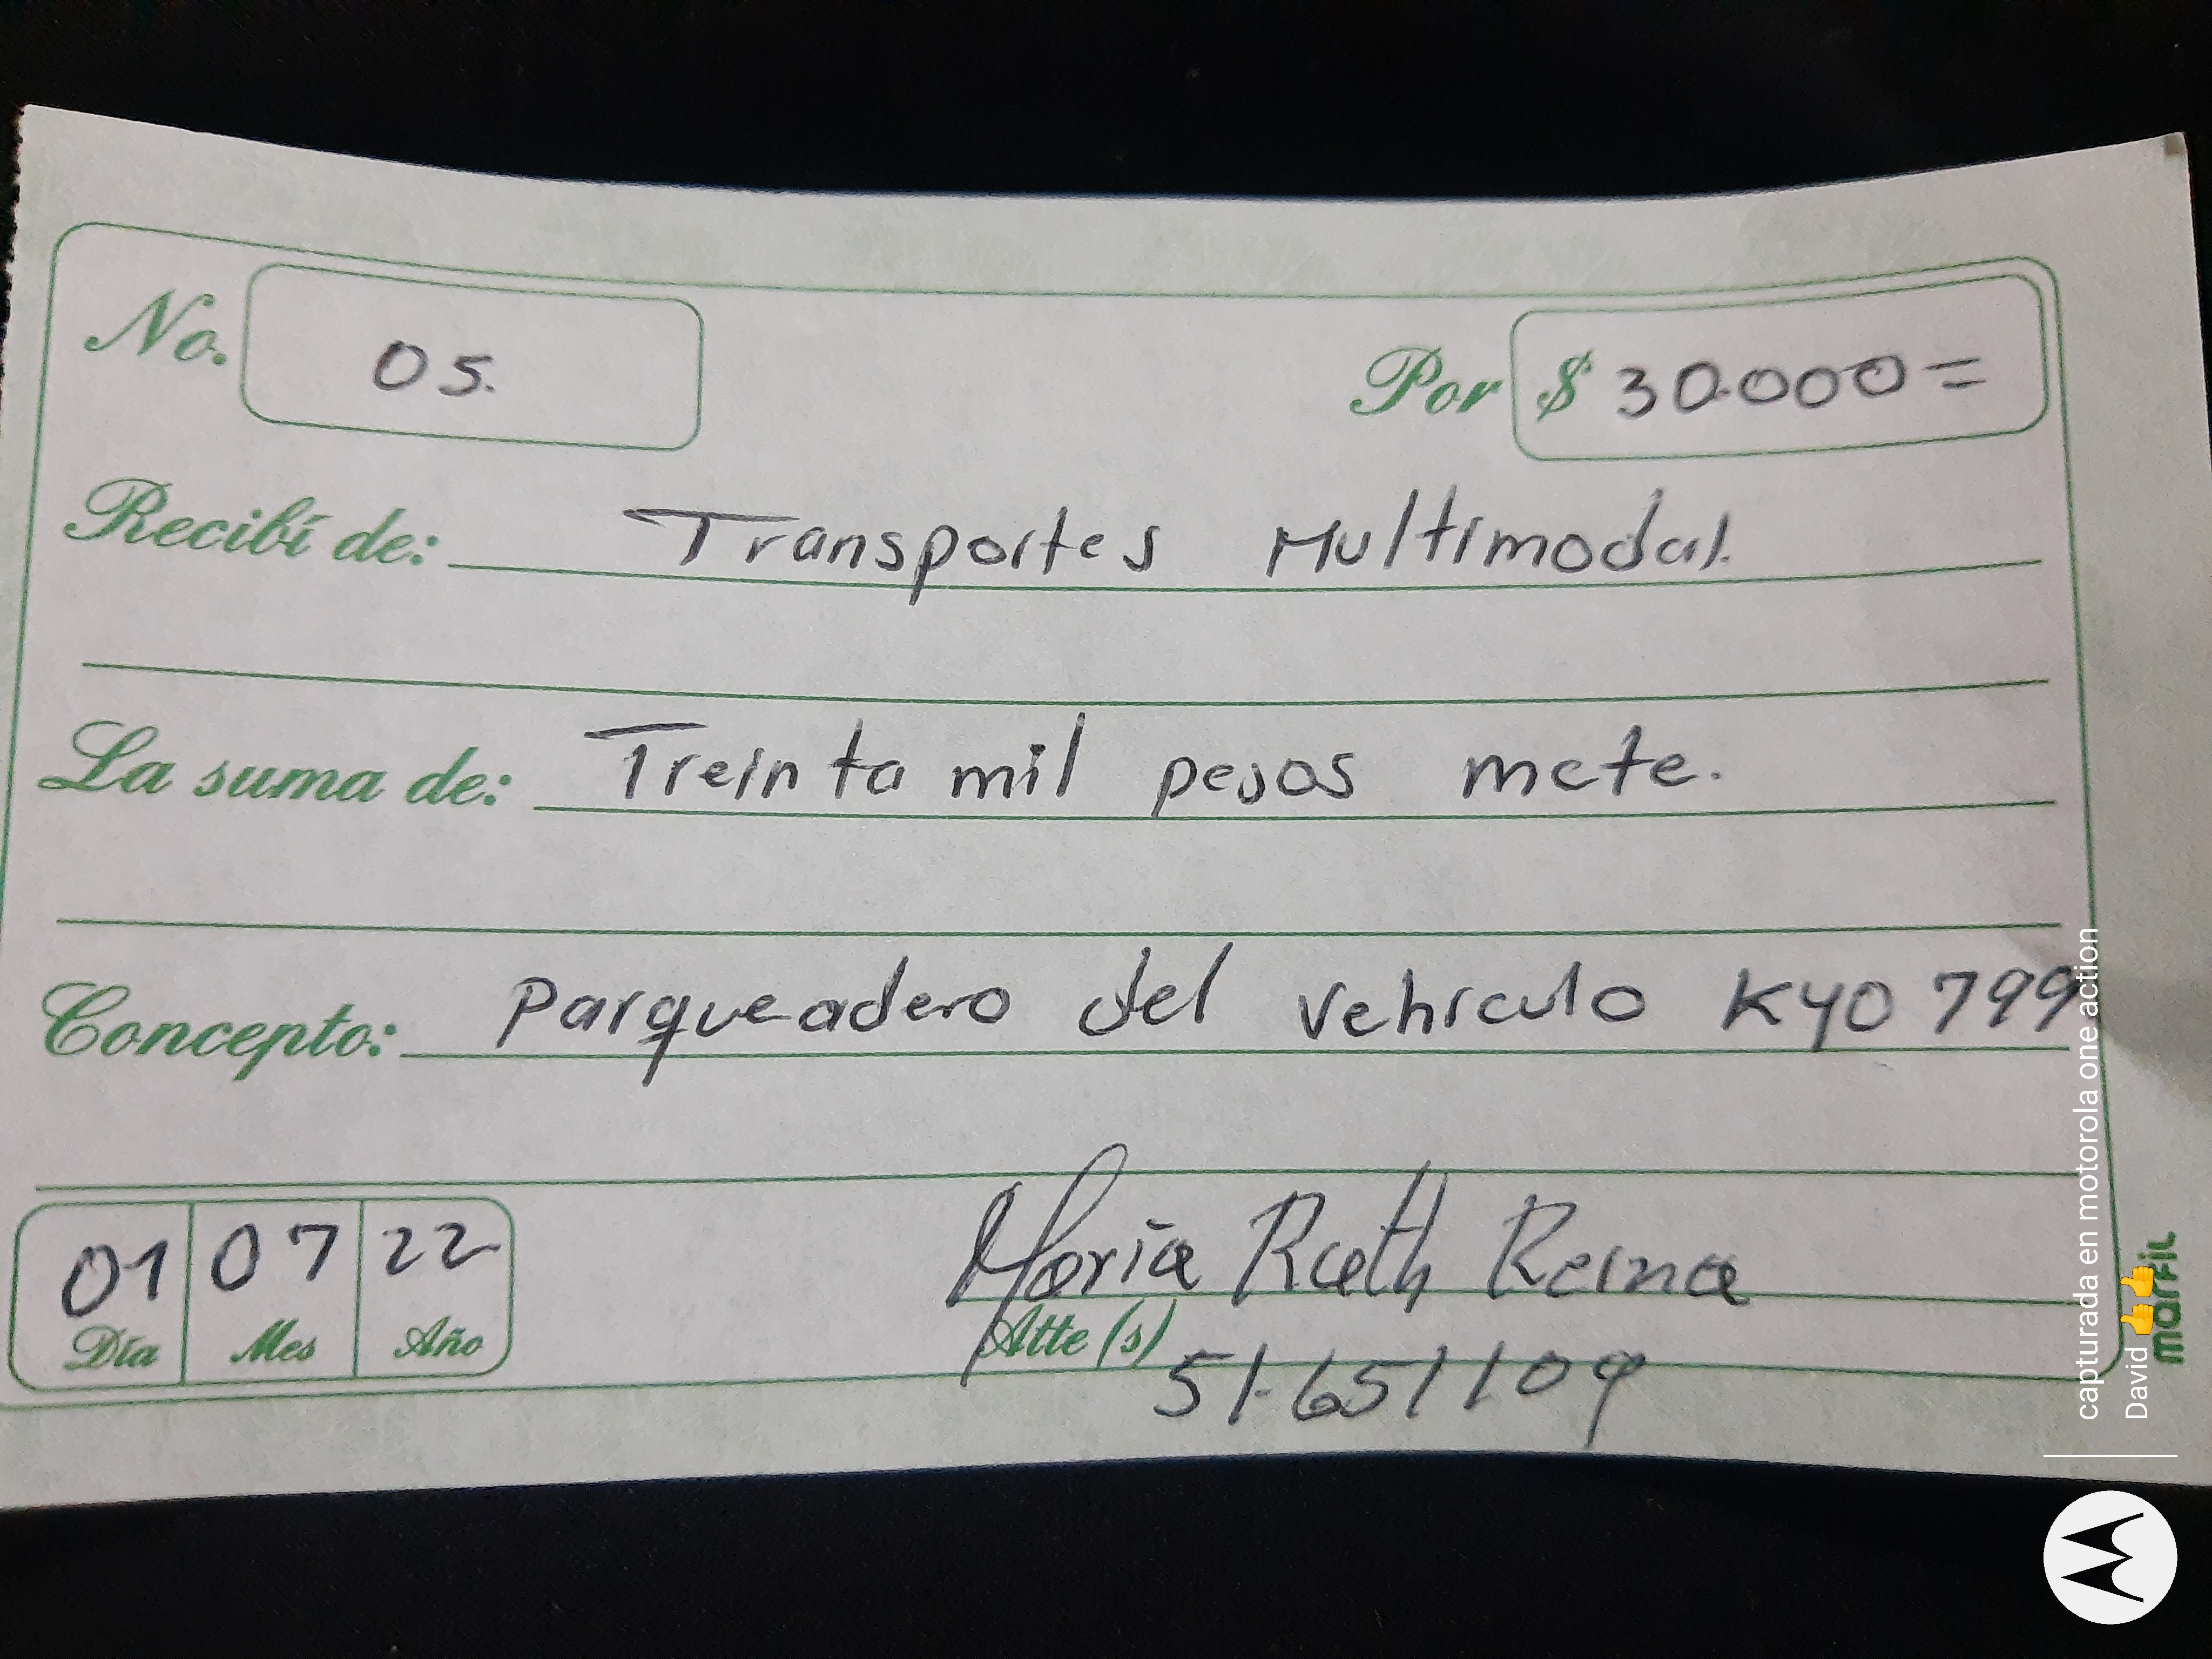 No. 05.
Por $ 30.000=
Recibí de: Transportes Multimodal.
La suma de: Treinta mil pesos mcte.
Concepto: Parqueadero del vehiculo KYO 799
01 07 22
Día Mes Año
Maria Ruth Reina
Atte (s)
51.651109
marfil
capturada en motorola one action
David 👍👍👍